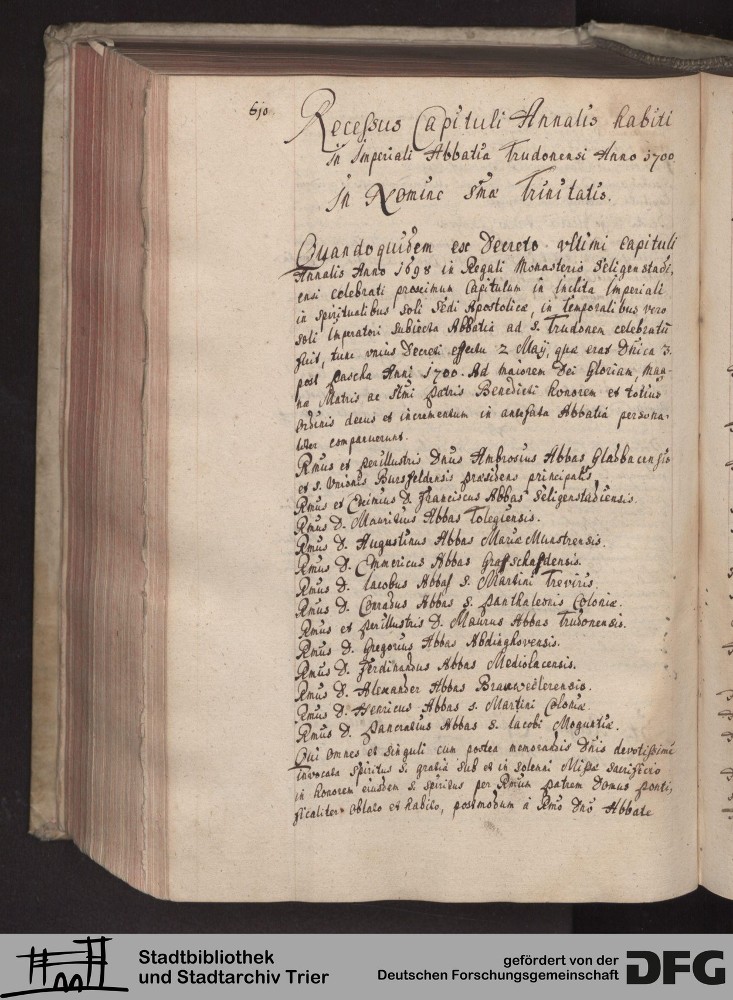 610
Recessus Capituli Annalis habiti
in Imperiali Abbatia Trudonensi Anno 1700
In Nomine Smæ Trinitatis.
Quandoquidem ex Decreto ultimi Capituli
Annalis Anno 1698 in Regali Monasterio Seligenstadi,
ensi celebrati proximum Capitulum in inclita Imperiali
in spiritualibus soli Sedi Apostolicæ, in temporalibus vero
soli Imperatori subiecta Abbatia ad S. Trudonem celebratu
fuit, tunc Decreti effectu 2 Maij, quæ erat Dnica 3.
post pascha Anni 1700. Ad maiorem Dei gloriam, Mag-
næ Matris ac Stmi patris Benedicti honorem et totius
ordinis decus et incrementum in antefata Abbatia persona-
liter comparuerunt.
Rmus et perillustris Dnus Ambrosius Abbas Gladbacensis
et S. Unionis Bursfeldensis præsidens principalis
Rmus et Eximius D. Franciscus Abbas Seligenstadiensis.
Rmus D. Mauritius Abbas Tolegiensis.
Rmus D. Augustinus Abbas Mariæ Munstrensis.
Rmus D. Emmericus Abbas Graffschaffdensis.
Rmus D. Iacobus Abbas S. Martini Treviris.
Rmus D. Conradus Abbas S. Panthaleonis Coloniæ.
Rmus et perillustris D. Maurus Abbas Trudonensis.
Rmus D. Gregorius Abbas Abdinghovensis.
Rmus D. Ferdinandus Abbas Mediolacensis.
Rmus D. Alexander Abbas Brauweilerensis.
Rmus D. Henricus Abbas S. Martini Coloniæ.
Rmus D. Pancratius Abbas S. Iacobi Moguntiæ.
Qui omnes et singuli cum postea memoratis Dnis devotissimè
invocata Spiritus S. gratiâ sub et in solenni Missæ sacrificio
in honorem eiusdem S. Spiritus per Rmum patrem Domus ponti,
ficaliter oblato et habito, postmodum à Rmo Dno Abbate
Stadtbibliothek
und Stadtarchiv Trier
gefördert von der
Deutschen Forschungsgemeinschaft
DFG